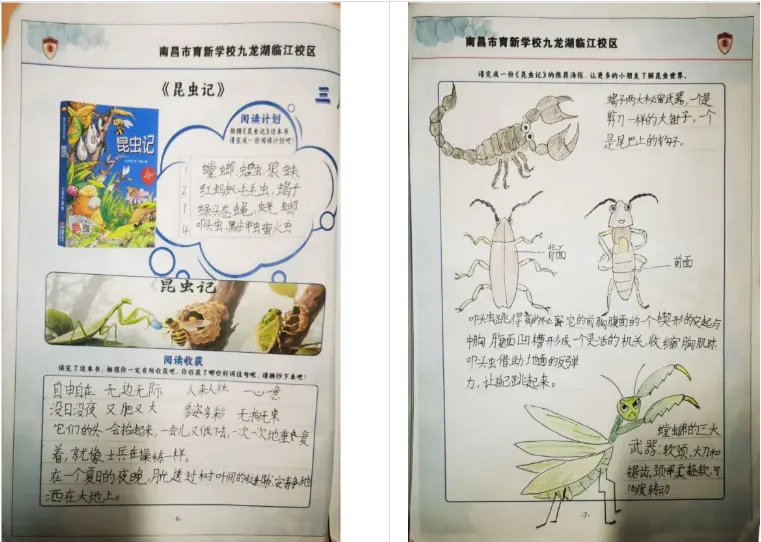 南昌市育新学校九龙湖临江校区
《昆虫记》
三
昆虫记
阅读计划
根据《昆虫记》这本书
请完成一份阅读计划吧!
1 螳螂、蟋蟀、狼蛛
2 红蚂蚁、毛毛虫、蝎子
3 绿头苍蝇、蜣螂
4 叩头虫、甲虫、萤火虫
昆虫记
阅读收获
读完了这本书,相信你一定有所收获吧,你收获了哪些好词佳句呢,请摘抄下来吧!
自由自在 无边无际 人来人往 一心一意
没日没夜 又肥又大 多姿多彩 无拘无束
它们的头一会抬起来,一会儿又低下去,一次一次地重复
着,就像士兵在操练一样。
在一个夏日的夜晚,月光透过树叶间的缝隙,安静地
洒在大地上。
-6-
南昌市育新学校九龙湖临江校区
请完成一份《昆虫记》的推荐海报,让更多的小朋友了解昆虫世界。
蝎子两大秘密武器,一个是
剪刀一样的大钳子,一个
是尾巴上的钩子。
背面
前面
叩头虫跳得高的秘密它的前胸腹面的一个楔形的突起与
中胸腹面凹槽形成一个灵活的机关,收缩胸肌时
叩头虫借助地面的反弹
力,让自己跳起来。
螳螂的三大
武器:软颈、大刀和
锯齿。颈部柔软,可
转动
-7-